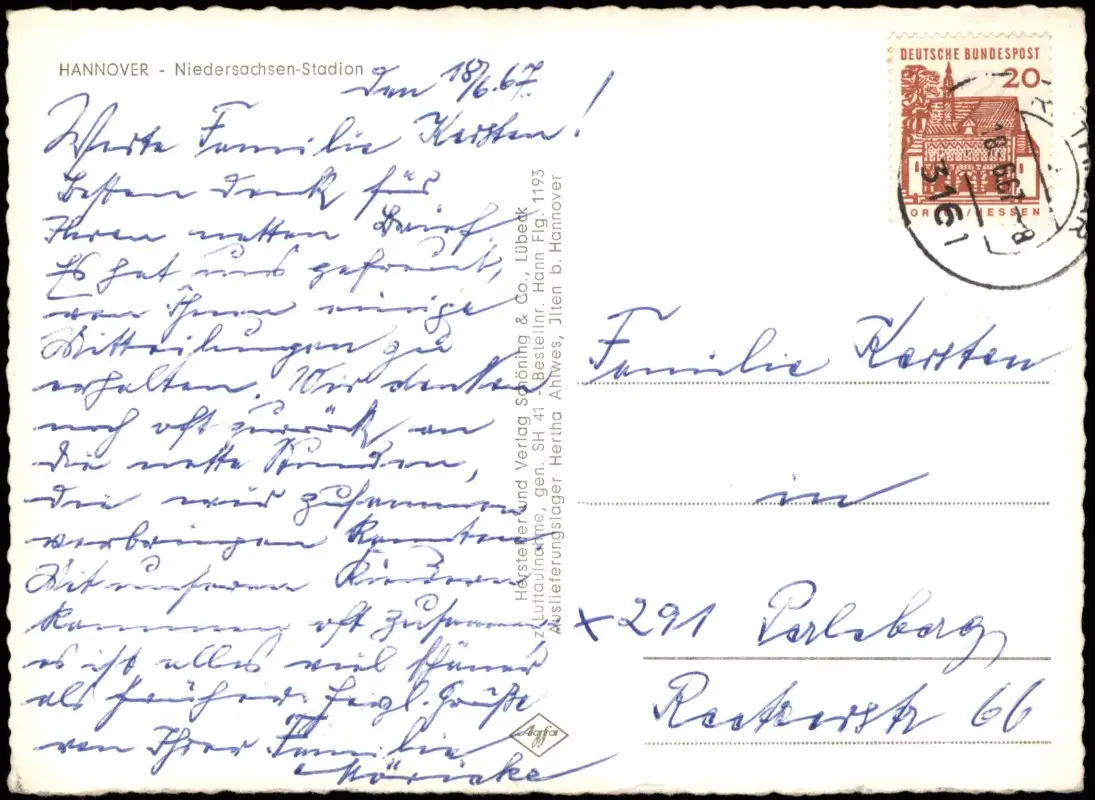 HANNOVER - Niedersachsen-Stadion
den 18/6.67.
Werte Familie Kersten!
Besten Dank für
Ihren netten Brief.
Es hat uns gefreut,
von Ihnen einige
Mitteilungen zu
erhalten. Wir denken
noch oft zurück an
die nette Stunden,
die wir zusammen
verbringen konnten
Mit unseren Kindern
kommen oft zusammen,
es ist alles viel schöner
als früher. Herzl. Grüße
von Ihrer Familie
Möricke
Hersteller und Verlag Schöning & Co., Lübeck
Luftaufnahme, gen. SH 41 - Bestellnr. Hann Flg. 1193
Auslieferungslager Hertha Ahlwes, Jlten b. Hannover
Agfa
DEUTSCHE BUNDESPOST
20
LORSCH/HESSEN
316
18.6.67-8
Familie Kersten
in
x 291 Perleberg
Reetzerstr 66